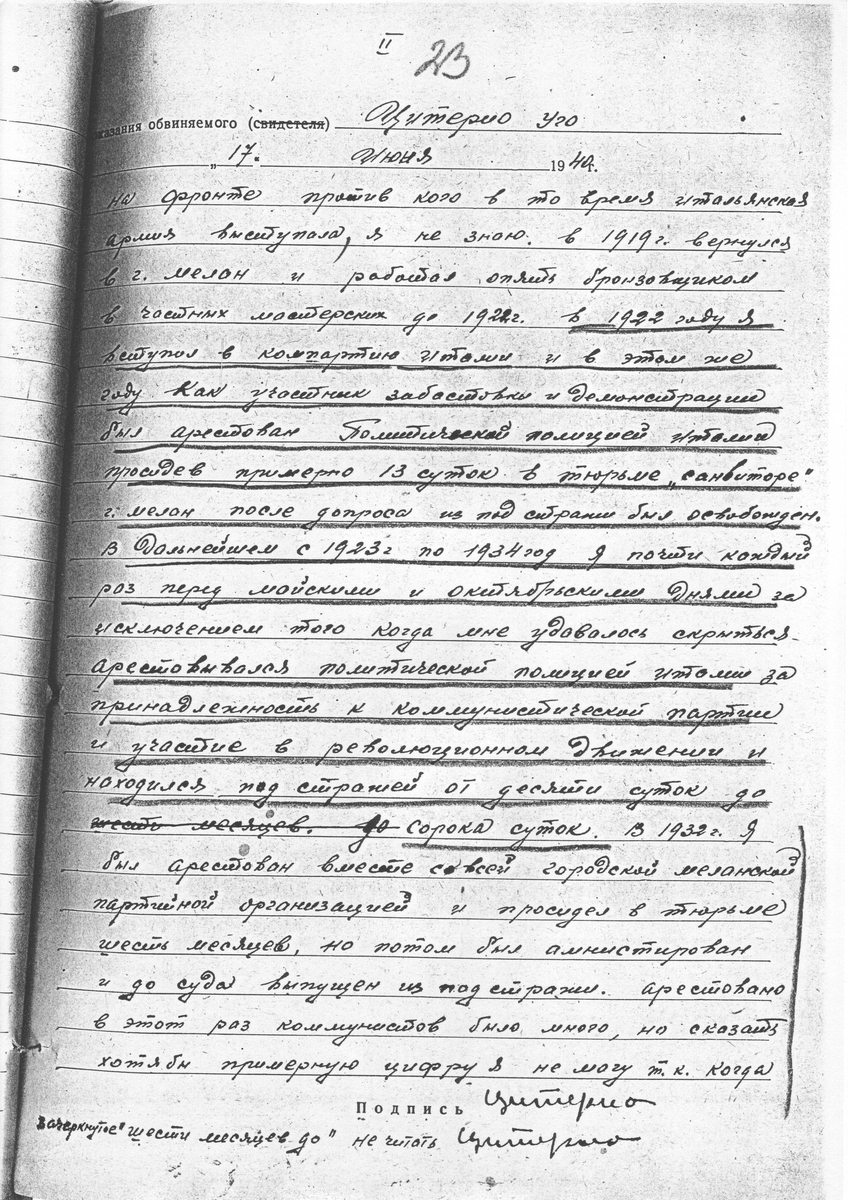 II
23
казания обвиняемого (свидетеля) Цитерио Уго
„17.
Июня 1940г.
на фронте против кого в то время итальянская
армия выступала, я не знаю. в 1919г. вернулся
в г. мелан и работал опять бронзовщиком
в частных мастерских до 1922г. в 1922 году я
вступил в компартию италии и в этом же
году как участник забастовки и демонстрации
был арестован Политической полицией италии
просидев примерно 13 суток в тюрьме „санвиторе"
г. мелан после допроса из под стражи был освобожден.
В Дальнейшем с 1923г по 1934 год я почти каждый
роз перед майскими и октябрьскими Днями за
исключением того когда мне удавалось скрыться
арестовывался политической полицией италии за
принадлежность к коммунистической партии
и участие в революционном движении и
находился под стражей от десяти суток до
шесть месяцев. до сорока суток. В 1932г. я
был арестован вместе со всей городской меланской
партийной организацией и просидел в тюрьме
шесть месяцев, но потом был амнистирован
и до суда выпущен из под стражи. арестовано
в этот раз коммунистов было много, но сказать
хотябы примерную цифру я не могу т.к. когда
Подпись Цитерио
Зачеркнутое "шести месяцев до" не читать Цитерио